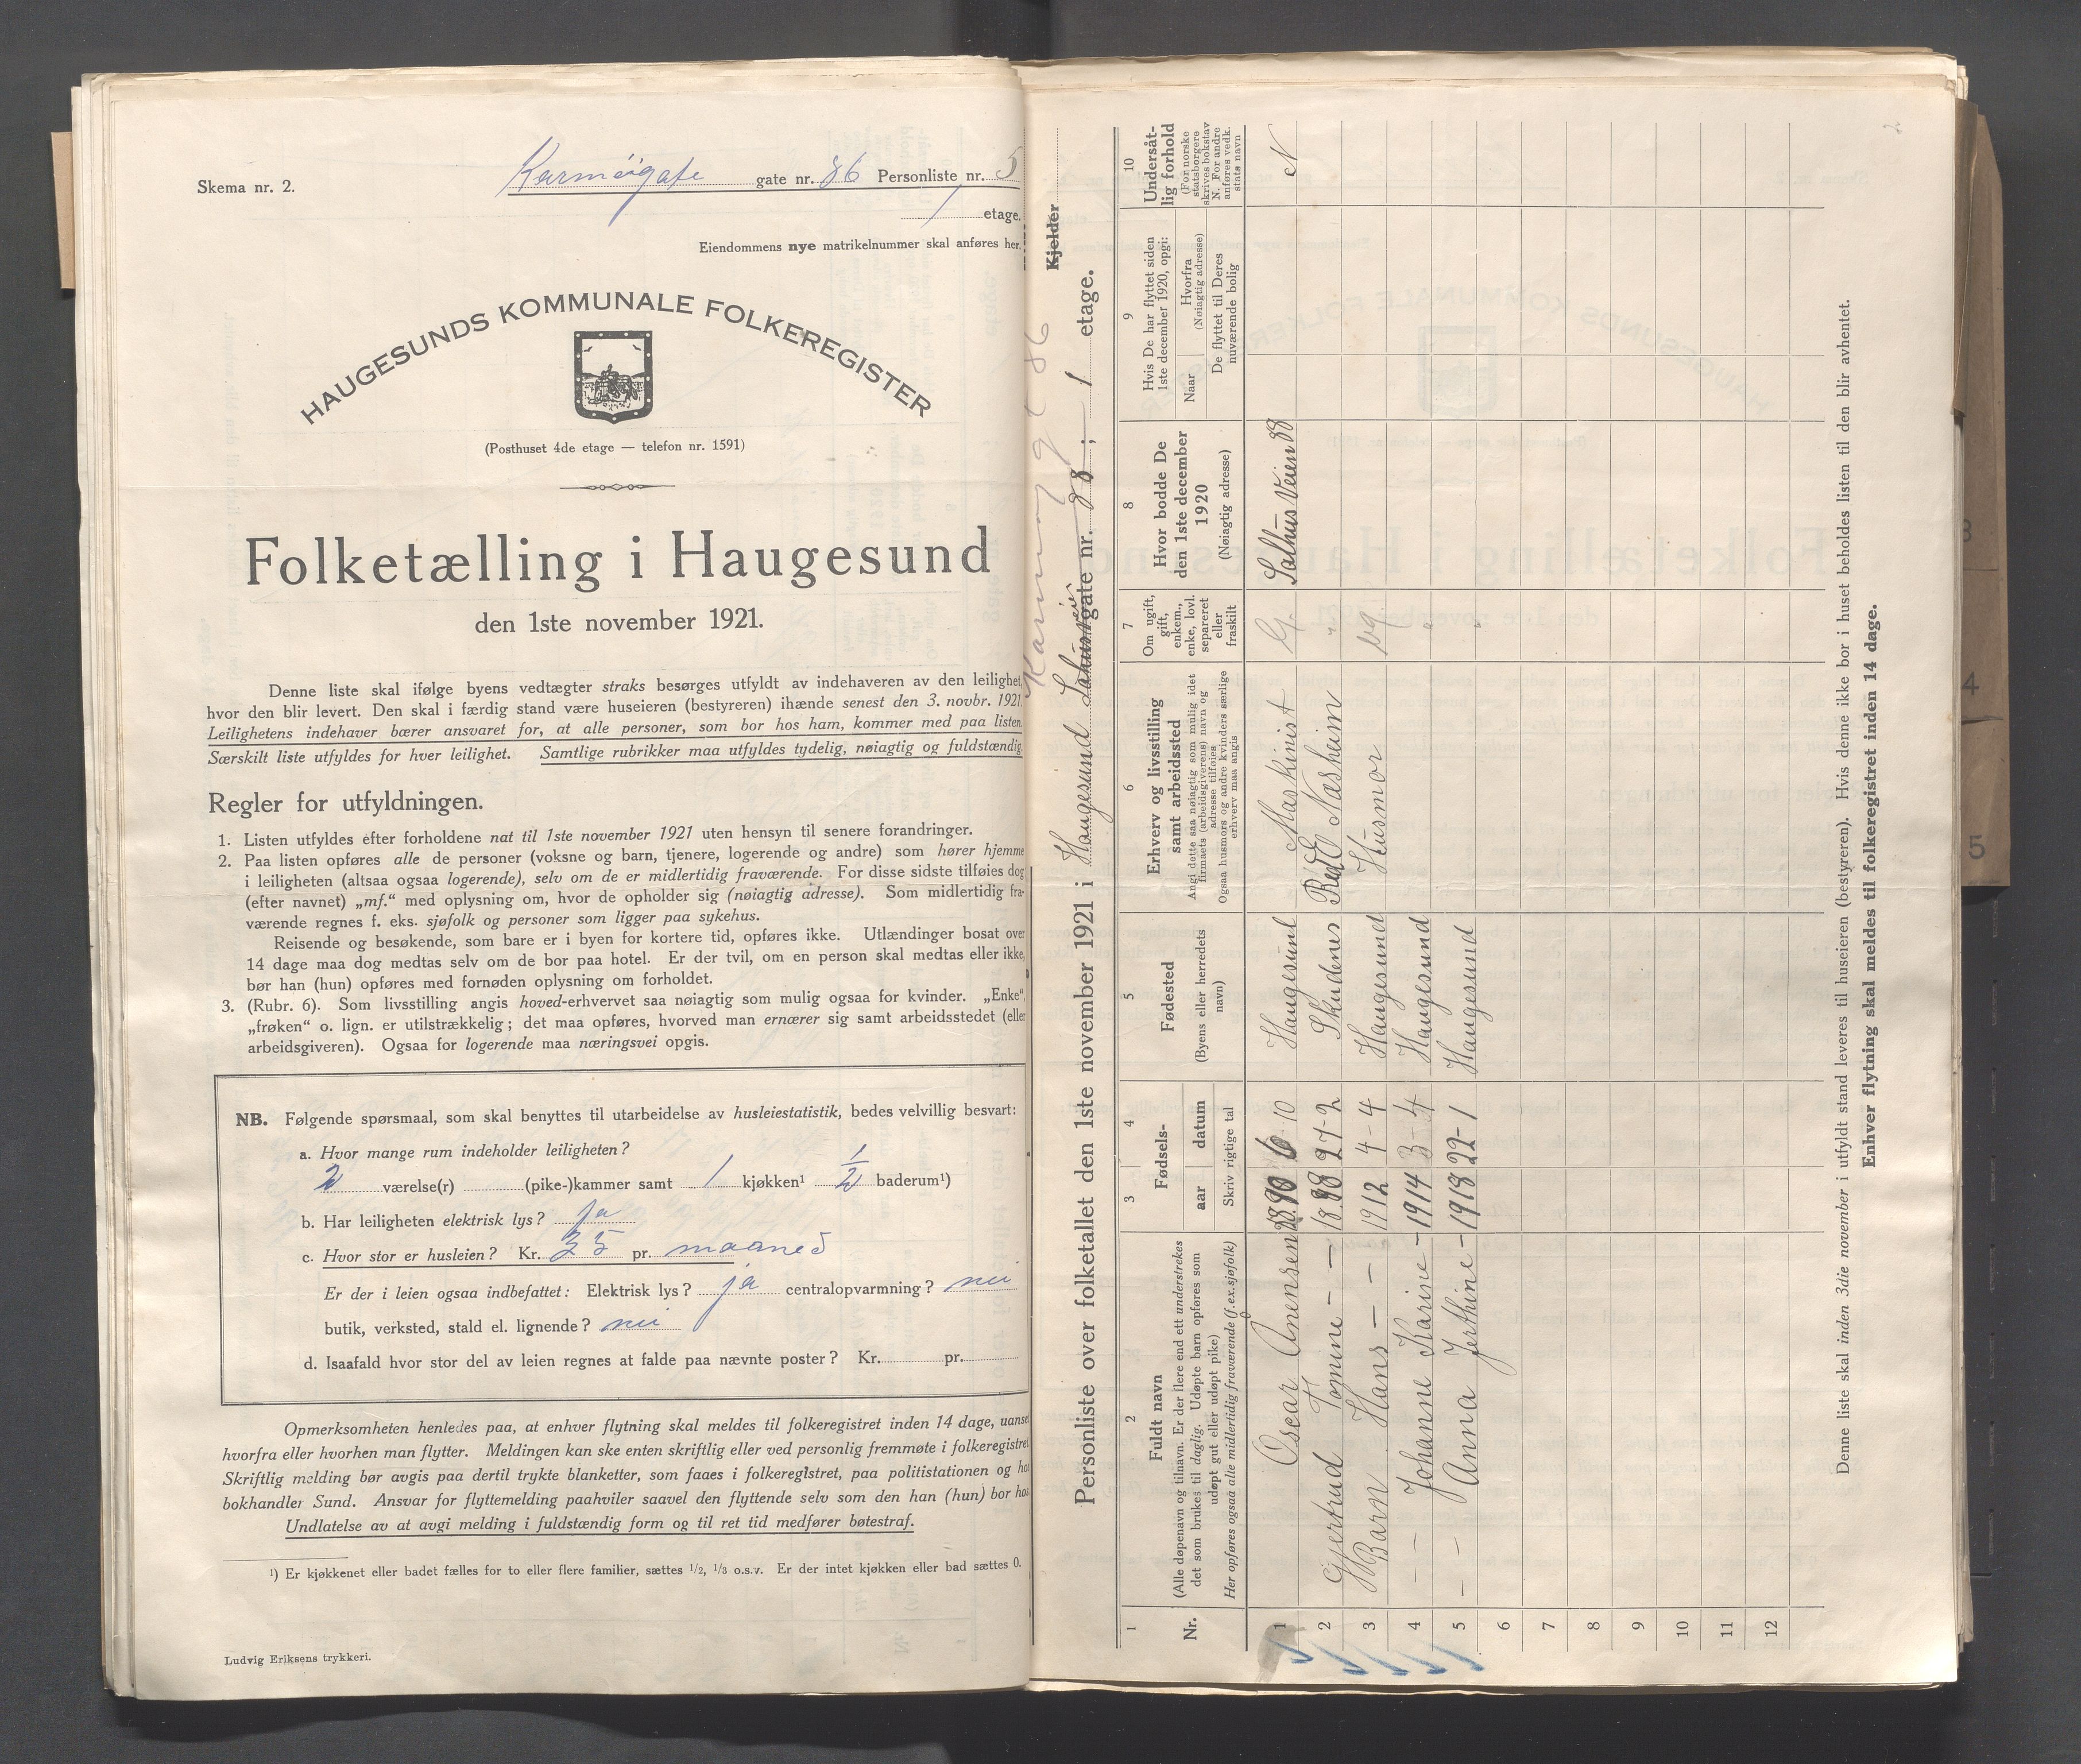 Skema nr. 2.
Karmöigate gate nr. 86 Personliste nr. 5
1 etage.
Eiendommens nye matrikelnummer skal anføres her.
HAUGESUNDS KOMMUNALE FOLKEREGISTER
(Posthuset 4de etage — telefon nr. 1591)
Folketælling i Haugesund
den 1ste november 1921.
Denne liste skal ifølge byens vedtægter straks besørges utfyldt av indehaveren av den leilighet,
hvor den blir levert. Den skal i færdig stand være huseieren (bestyreren) ihænde senest den 3. novbr. 1921.
Leilighetens indehaver bærer ansvaret for, at alle personer, som bor hos ham, kommer med paa listen.
Særskilt liste utfyldes for hver leilighet. Samtlige rubrikker maa utfyldes tydelig, nøiagtig og fuldstændig.
Regler for utfyldningen.
1. Listen utfyldes efter forholdene nat til 1ste november 1921 uten hensyn til senere forandringer.
2. Paa listen opføres alle de personer (voksne og barn, tjenere, logerende og andre) som hører hjemme
i leiligheten (altsaa ogsaa logerende), selv om de er midlertidig fraværende. For disse sidste tilføies dog
(efter navnet) „mf.“ med oplysning om, hvor de opholder sig (nøiagtig adresse). Som midlertidig fra-
værende regnes f. eks. sjøfolk og personer som ligger paa sykehus.
Reisende og besøkende, som bare er i byen for kortere tid, opføres ikke. Utlændinger bosat over
14 dage maa dog medtas selv om de bor paa hotel. Er der tvil, om en person skal medtas eller ikke,
bør han (hun) opføres med fornøden oplysning om forholdet.
3. (Rubr. 6). Som livsstilling angis hoved-erhvervet saa nøiagtig som mulig ogsaa for kvinder. „Enke“,
„frøken“ o. lign. er utilstrækkelig; det maa opføres, hvorved man ernærer sig samt arbeidsstedet (eller
arbeidsgiveren). Ogsaa for logerende maa næringsvei opgis.
NB. Følgende spørsmaal, som skal benyttes til utarbeidelse av husleiestatistik, bedes velvillig besvart:
a. Hvor mange rum indeholder leiligheten?
2 værelse(r) (pike-)kammer samt 1 kjøkken¹ 1/2 baderum¹)
b. Har leiligheten elektrisk lys? ja
c. Hvor stor er husleien? Kr. 35 pr. maaned
Er der i leien ogsaa indbefattet: Elektrisk lys? ja centralopvarmning? nei
butik, verksted, stald el. lignende? nei
d. Isaafald hvor stor del av leien regnes at falde paa nævnte poster? Kr. pr.
Opmerksomheten henledes paa, at enhver flytning skal meldes til folkeregistret inden 14 dage, uanset
hvorfra eller hvorhen man flytter. Meldingen kan ske enten skriftlig eller ved personlig fremmøte i folkeregistret.
Skriftlig melding bør avgis paa dertil trykte blanketter, som faaes i folkeregistret, paa politistationen og hos
bokhandler Sund. Ansvar for flyttemelding paahviler saavel den flyttende selv som den han (hun) bor hos.
Undlatelse av at avgi melding i fuldstændig form og til ret tid medfører bøtestraf.
¹) Er kjøkkenet eller badet fælles for to eller flere familier, sættes 1/2, 1/3 o.s.v. Er der intet kjøkken eller bad sættes 0.
Ludvig Eriksens trykkeri.
Karmöygt 86
Kjelder
Personliste over folketallet den 1ste november 1921 i Haugesund Salhusveien gate nr. 88; 1 etage.
1 2 3 4 5 6 7 8 9 10
Nr.
Fuldt navn
(Alle døpenavn og tilnavn. Er der flere end ett understrekes
det som brukes til daglig. Udøpte barn opføres som
udøpt gut eller udøpt pike)
Her opføres ogsaa alle midlertidig fraværende (f.ex. sjøfolk)
Fødsels-
aar datum
Skriv rigtige tal
Fødested
(Byens eller herredets
navn)
Erhverv og livsstilling
samt arbeidssted
Angi dette saa nøiagtig som mulig idet
firmaets (arbeidsgiverens) navn og
adresse tilføies
Ogsaa husmors og andre kvinders særlige
erhverv maa angis
Om ugift,
gift,
enkem.,
enke, lovl.
separeret
eller
fraskilt
Hvor bodde De
den 1ste december
1920
(Nøiagtig adresse)
Hvis De har flyttet siden
1ste december 1920, opgi:
Naar
Hvorfra
(Nøiagtig adresse)
De flyttet til Deres
nuværende bolig
Undersåt-
lig forhold
(For norske
statsborgere
skrives bokstav
N. For andre
anføres vedk.
stats navn
1 Oscar Anensen 1890 6-10 Haugesund Maskinist G. Salhus-Veien 88 N
2 Gjertrud Tomine — — 1888 27-2 Skudenes Red E Næsheim "
3 Barn Hans — — 1912 4-4 Haugesund Husmor ug
4 — — Johanne Karine — 1914 3-4 Haugesund "
5 — — Anna Jerthine — 1918 22-1 Haugesund "
6
7
8
9
10
11
12
Denne liste skal inden 3die november i utfyldt stand leveres til huseieren (bestyreren). Hvis denne ikke bor i huset beholdes listen til den blir avhentet.
Enhver flytning skal meldes til folkeregistret inden 14 dage.
2
3
4
5